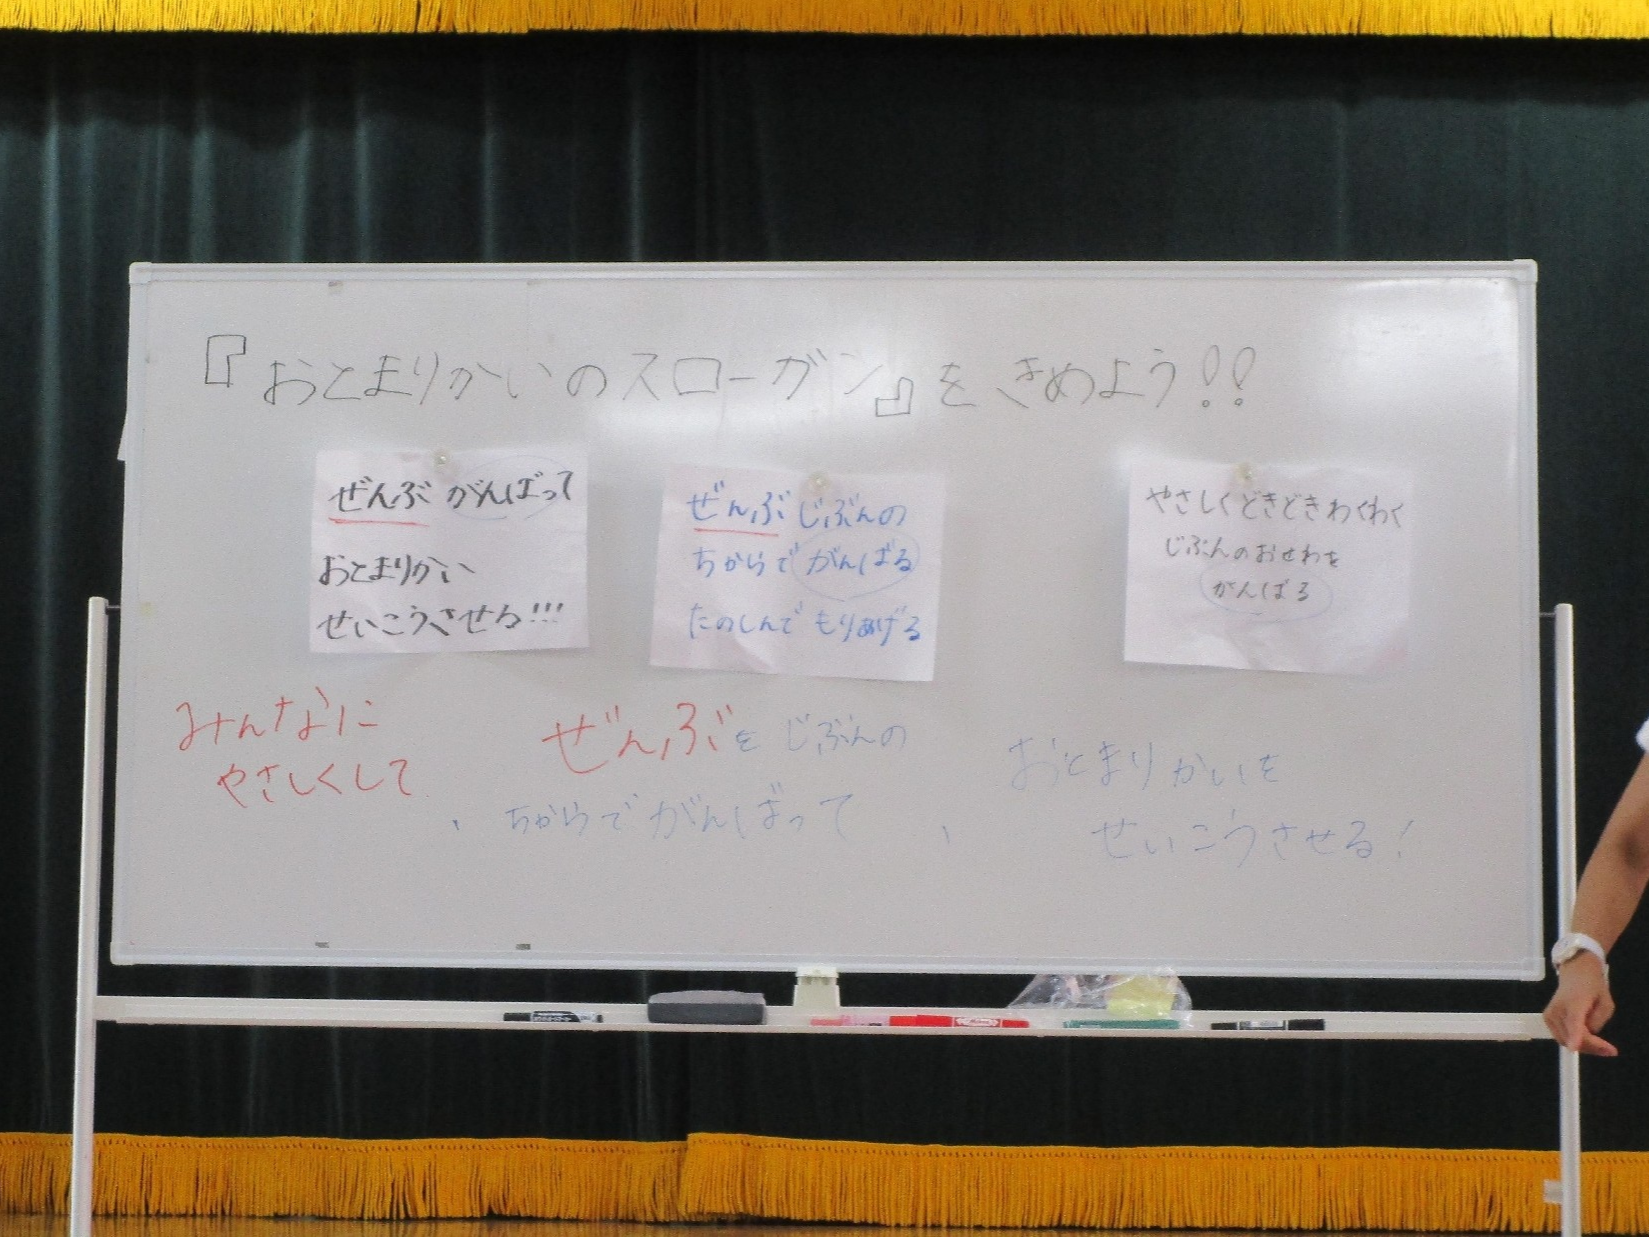 『おとまりかいのスローガン』をきめよう!!
ぜんぶ がんばって
おとまりかい
せいこうさせる!!!
ぜんぶ じぶんの
ちからで がんばる
たのしんで もりあげる
やさしくどきどきわくわく
じぶんのおせわを
がんばる
みんなに
やさしくして
、
ぜんぶを じぶんの
ちからで がんばって
、
おとまりかいを
せいこうさせる!